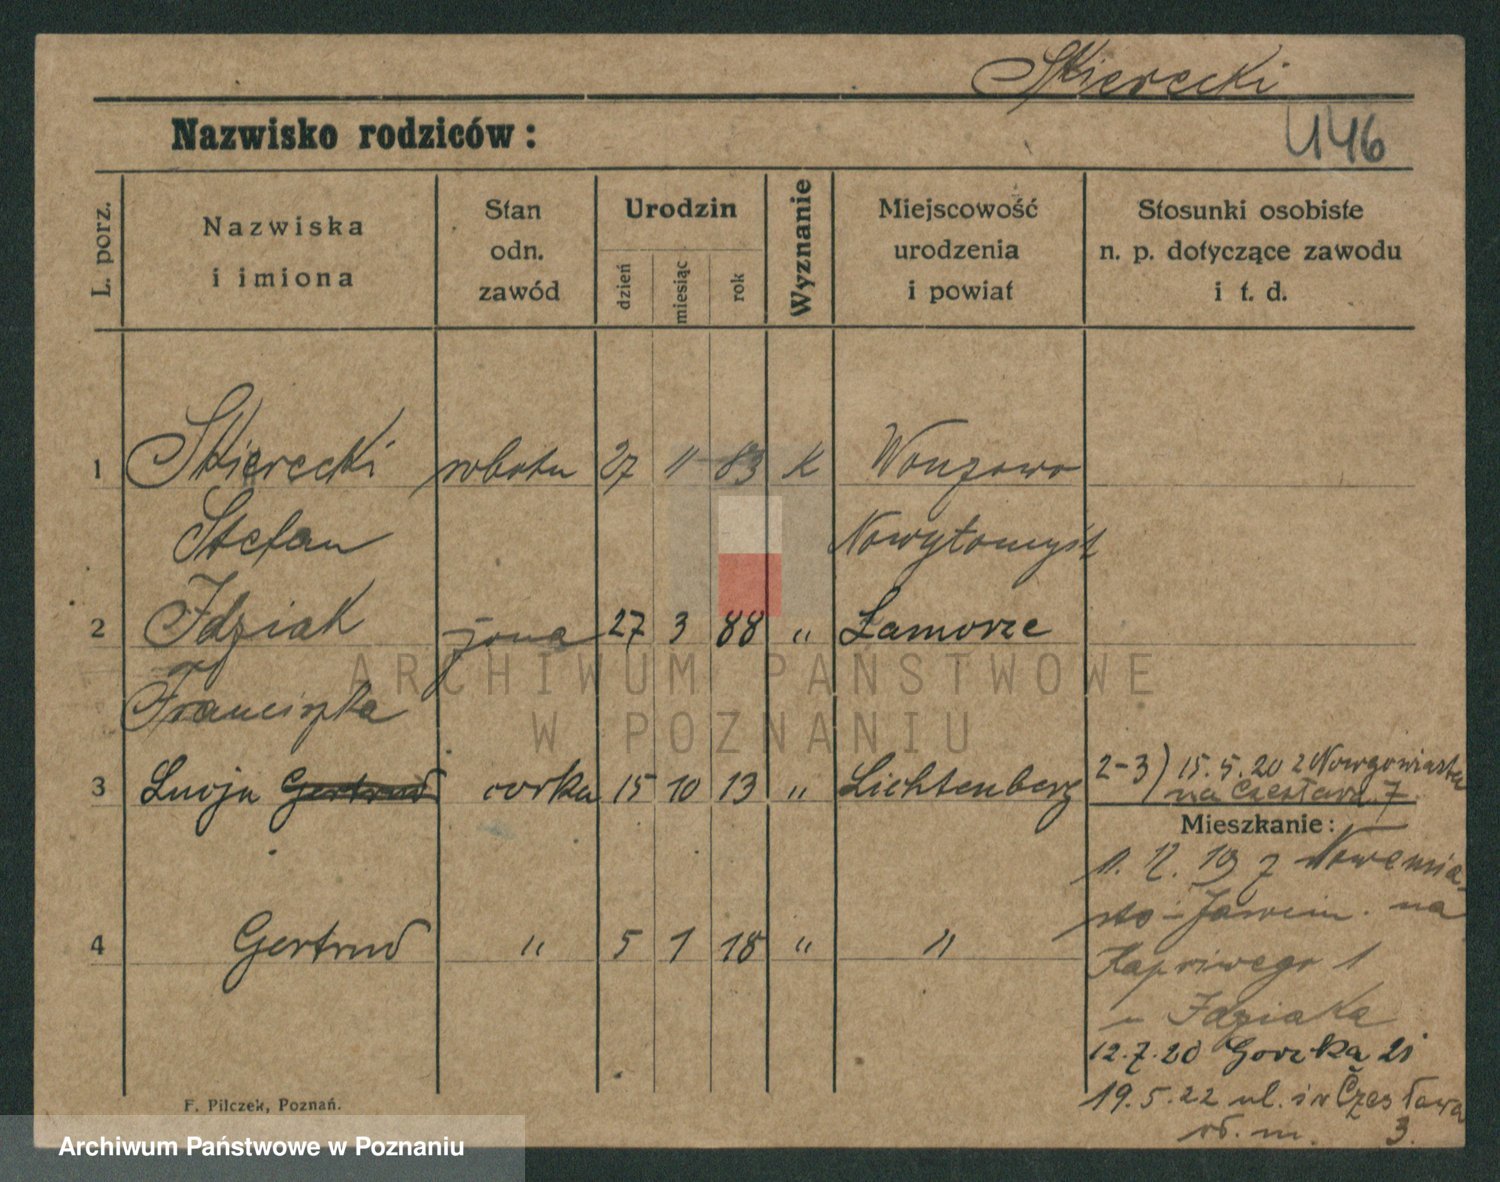 Skierecki
446
Nazwisko rodziców:
L. porz.
Nazwiska
i imiona
Stan
odn.
zawód
Urodzin
dzień
miesiąc
rok
Wyznanie
Miejscowość
urodzenia
i powiat
Stosunki osobiste
n. p. dotyczące zawodu
i t. d.
1 Skierecki robotn 27 11 83 K Wonzowo
Stefan Nowytomyśl
2 Idziak żona 27 3 88 " Lamorze
Franciszka
3 Lucja Gertrud corka 15 10 13 " Lichtenberg
2-3) 15.5.20 z Nowgomiasta
na Czesława 7
Mieszkanie:
1. 12. 19 z Nowemia-
sto - Jarocin. na
1
- Idziaka
4 Gertrud " 5 1 18 " "
12.7.20 Gorzka 21
19.5.22 ul. św Czesława
3.
F. Pilczek, Poznań.
ARCHIWUM PAŃSTWOWE
W POZNANIU
Archiwum Państwowe w Poznaniu